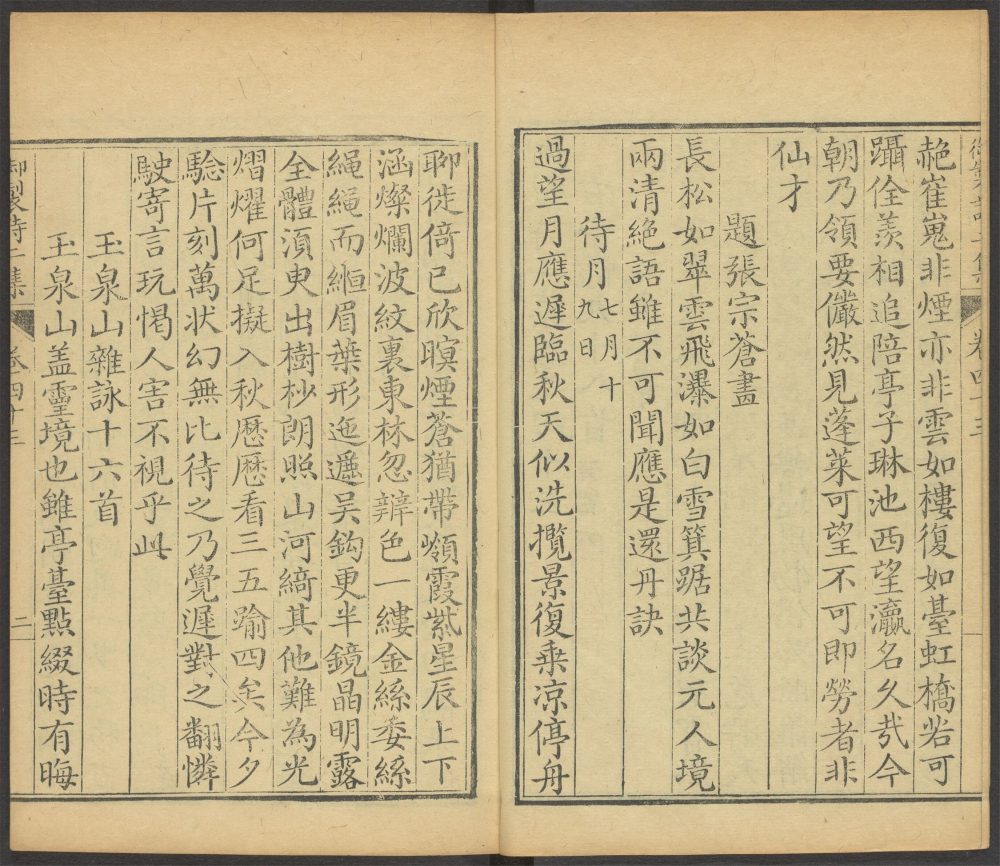 赩崔嵬非煙亦非雲如樓復如臺虹橋若可
躡佺羨相追陪亭子琳池西望瀛名久哉今
朝乃領要儼然見蓬萊可望不可即勞者非
仙才
題張宗蒼畫
長松如翠雲飛瀑如白雪箕踞共談元人境
兩清絕語雖不可聞應是還丹訣
待月七月十九日
過望月應遲臨秋天似洗攬景復乗凉停舟
聊徙倚已欣暝煙蒼猶帶嶺霞紫星辰上下
涵燦爛波紋裏東林忽辯色一縷金絲委絲
繩繩而緪眉葉形迤邐吴鈎更半鏡晶明露
全體湏臾出樹杪朗照山河綺其他難為光
熠燿何足擬入秋歷歷看三五踰四矣今夕
騐片刻萬状幻無比待之乃覺遲對之翻憐
駛寄言玩愒人害不視乎此
玉泉山雜詠十六首
玉泉山盖靈境也雖亭臺點綴時有晦
御製詩二集
卷四十三
二